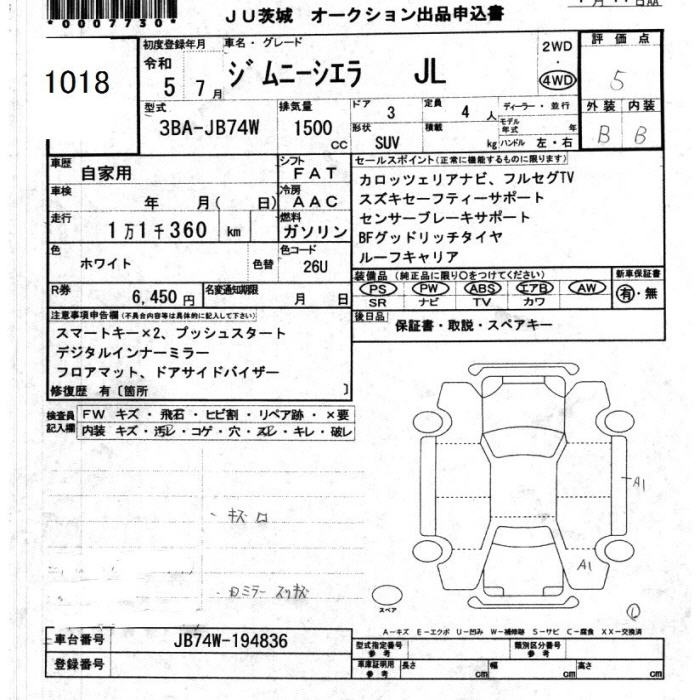 *0007730*
JU茨城 オークション出品申込書
1018
初度登録年月
令和 5 7月
車名・グレード
ジムニーシエラ JL
2WD
・
4WD
評価点
5
外装 内装
B B
型式
3BA-JB74W
排気量
1500 cc
ドア 3
定員 4 人
形状 SUV
積載 kg
ディーラー・並行
モデル年式 年
ハンドル 左・右
車歴 自家用
シフト FAT
車検 年 月( 日)
冷房 AAC
走行 1万1千360 km
燃料 ガソリン
色 ホワイト 色替
色コード 26U
R券 6,450円
名変通知期限 月 日
セールスポイント(正常に機能するものに限ります)
カロッツェリアナビ、フルセグTV
スズキセーフティーサポート
センサーブレーキサポート
BFグッドリッチタイヤ
ルーフキャリア
装備品 (純正品に限り○をつけてください)
PS PW ABS エアB AW
SR ナビ TV カワ
新車保証書
有・無
後日品
保証書・取説・スペアキー
注意事項申告欄(不具合内容等は具体的に記入して下さい)
スマートキー×2、プッシュスタート
デジタルインナーミラー
フロアマット、ドアサイドバイザー
修復歴 有〔箇所 〕
検査員記入欄
FW キズ・飛石・ヒビ割・リペア跡・×要
内装 キズ・汚レ・コゲ・穴・スレ・キレ・破レ
・キズ
ミラー スリキズ
A1
A1
スペア
A-キズ E-エクボ U-凹み W-補修跡 S-サビ C-腐食 XX-交換済
車台番号 JB74W-194836
登録番号
型式指定番号 参考
類別区分番号 参考
車庫証明用 参考
長さ cm
幅 cm
高さ cm